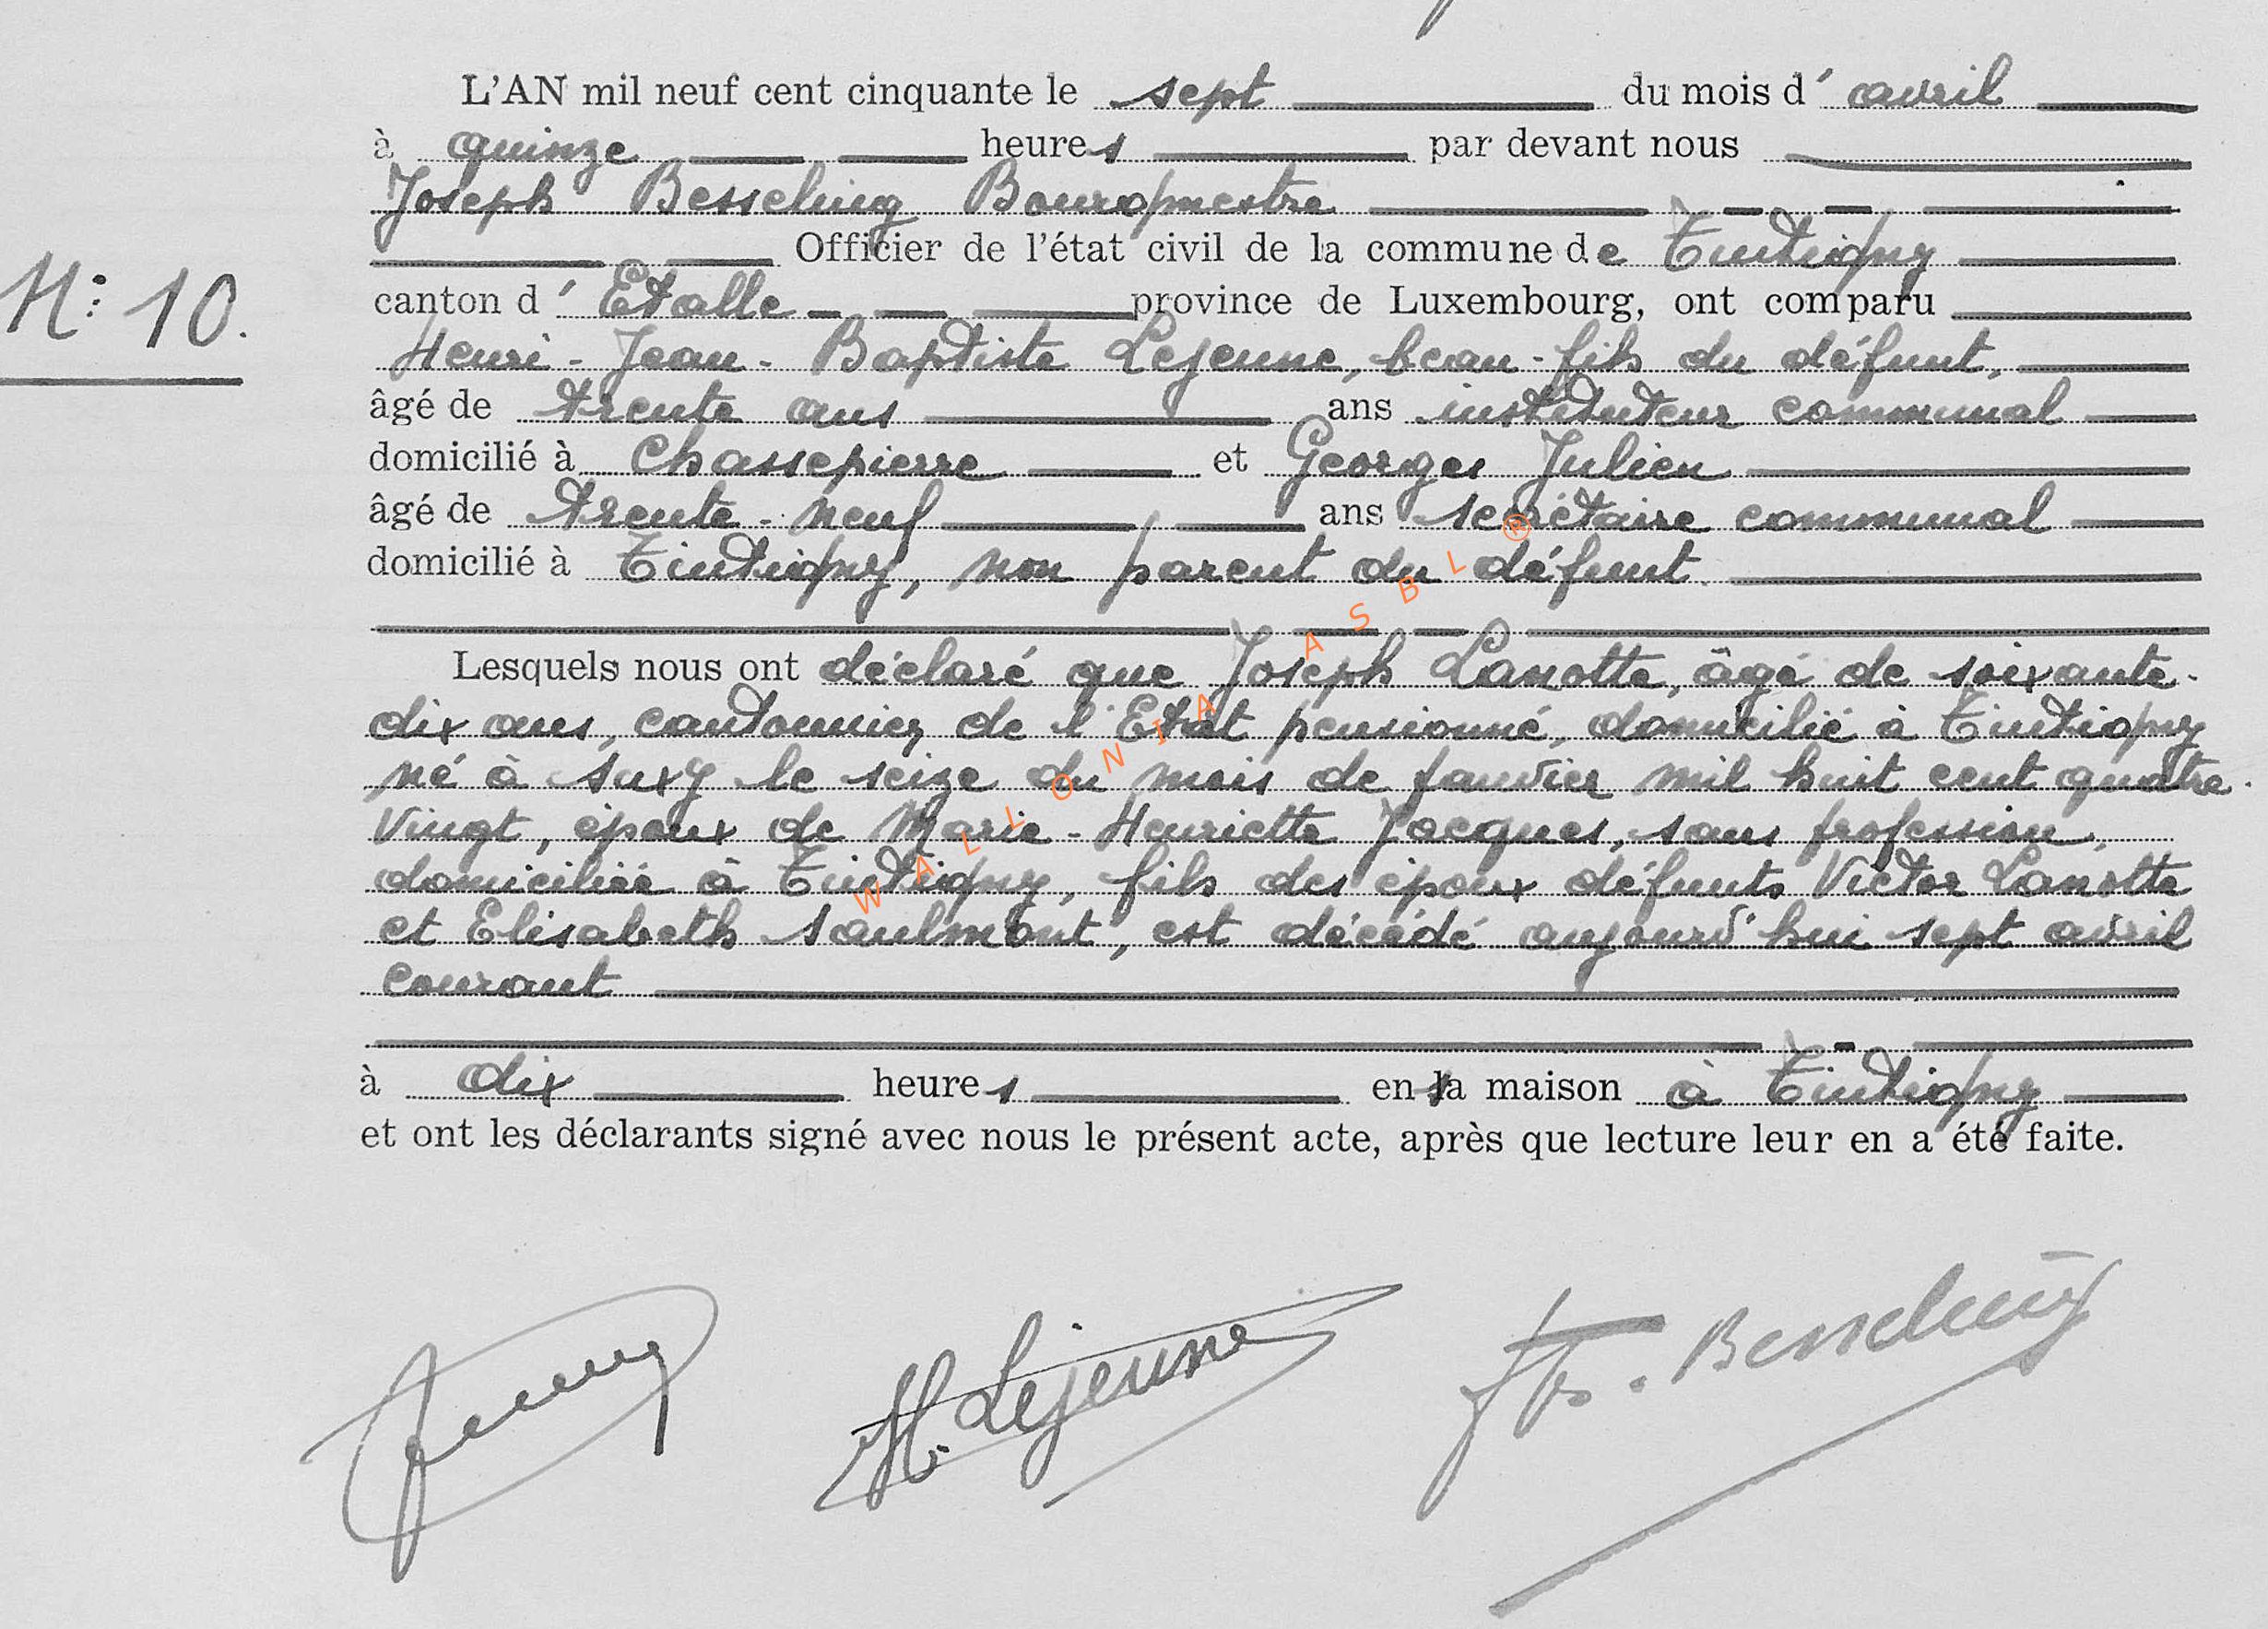 L'AN mil neuf cent cinquante le sept du mois d' avril
à quinze heures par devant nous
Joseph Besseling Bourgmestre
Officier de l'état civil de la commune de Tintigny
N: 10.
canton d' Etalle province de Luxembourg, ont comparu
Henri-Jean-Baptiste Lejeune, beau-fils du défunt,
âgé de trente ans ans instituteur communal
domicilié à Chassepierre et Georges Julien
âgé de trente-neuf ans secrétaire communal
domicilié à Tintigny, non parent du défunt.
Lesquels nous ont déclaré que Joseph Lanotte, âgé de soixante-
dix ans, cantonnier de l'Etat pensionné, domicilié à Tintigny
né à Suxy le seize du mois de janvier mil huit cent quatre-
vingt, époux de Marie-Henriette Jacques, sans profession,
domiciliée à Tintigny, fils des époux défunts Victor Lanotte
et Elisabeth Saulmont, est décédé aujourd'hui sept avril
courant
à dix heures en sa maison à Tintigny
et ont les déclarants signé avec nous le présent acte, après que lecture leur en a été faite.
H. Lejeune
Besseling
WALLONIA ASBL ®